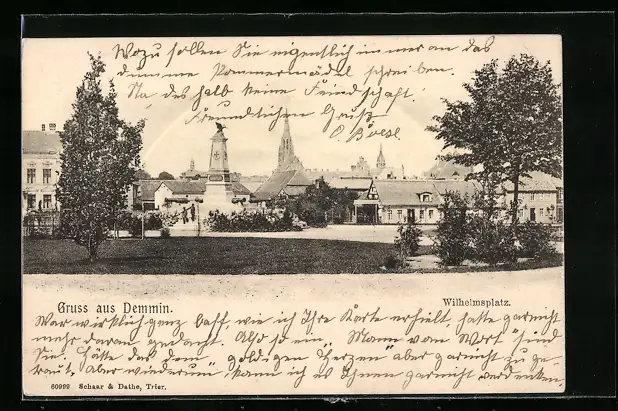 Wozu sollen Sie eigentlich immer an das
dumme Pommermädel schreiben.
Na deshalb keine Feindschaft.
Freundlichen Gruß
Böese
Gruss aus Demmin.
Wilhelmsplatz.
War wirklich ganz baff, wie ich Ihre Karte erhielt, hatte garnicht
mehr daran gedacht. Also so ein „Mann vom Wort" sind
Sie! Hätte das dem „goldigen Herzen" aber garnicht zu ge-
traut, Aber wiederum, kann ich es Ihnen garnicht verdenken,
60999 Schaar & Dathe, Trier.